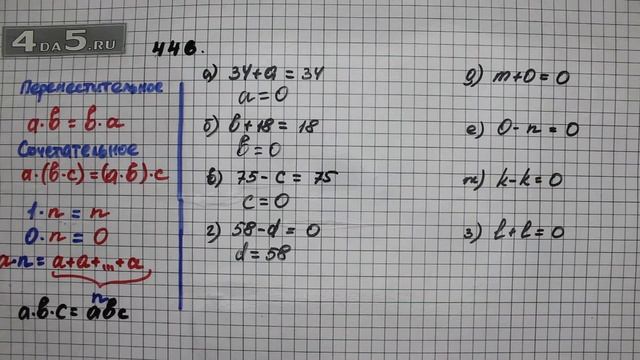 4DA5.RU
446.
Переместительное
a·b = b·a
Сочетательное
a·(b·c)=(a·b)·c
1·n = n
0·n = 0
a·n = a+a+...+a
n
a·b·c = abc
а) 34+a = 34
a = 0
б) b+18 = 18
b = 0
в) 75-c = 75
c = 0
г) 58-d = 0
d = 58
д) m+0 = 0
е) 0-n = 0
ж) k-k = 0
з) l+l = 0